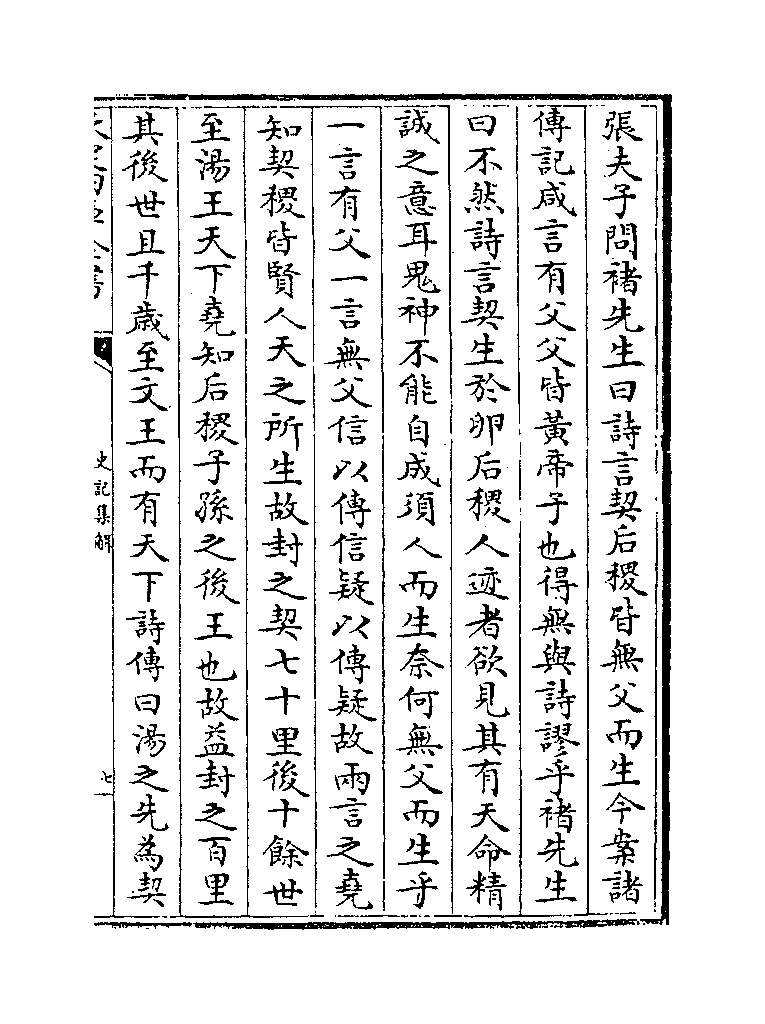 張夫子問褚先生曰詩言契后稷皆無父而生今案諸
傳記咸言有父父皆黃帝子也得無與詩謬乎褚先生
曰不然詩言契生於卵后稷人迹者欲見其有天命精
誠之意耳鬼神不能自成須人而生奈何無父而生乎
一言有父一言無父信以傳信疑以傳疑故兩言之堯
知契稷皆賢人天之所生故封之契七十里後十餘世
至湯王天下堯知后稷子孫之後王也故益封之百里
其後世且千歲至文王而有天下詩傳曰湯之先為契
史記集解